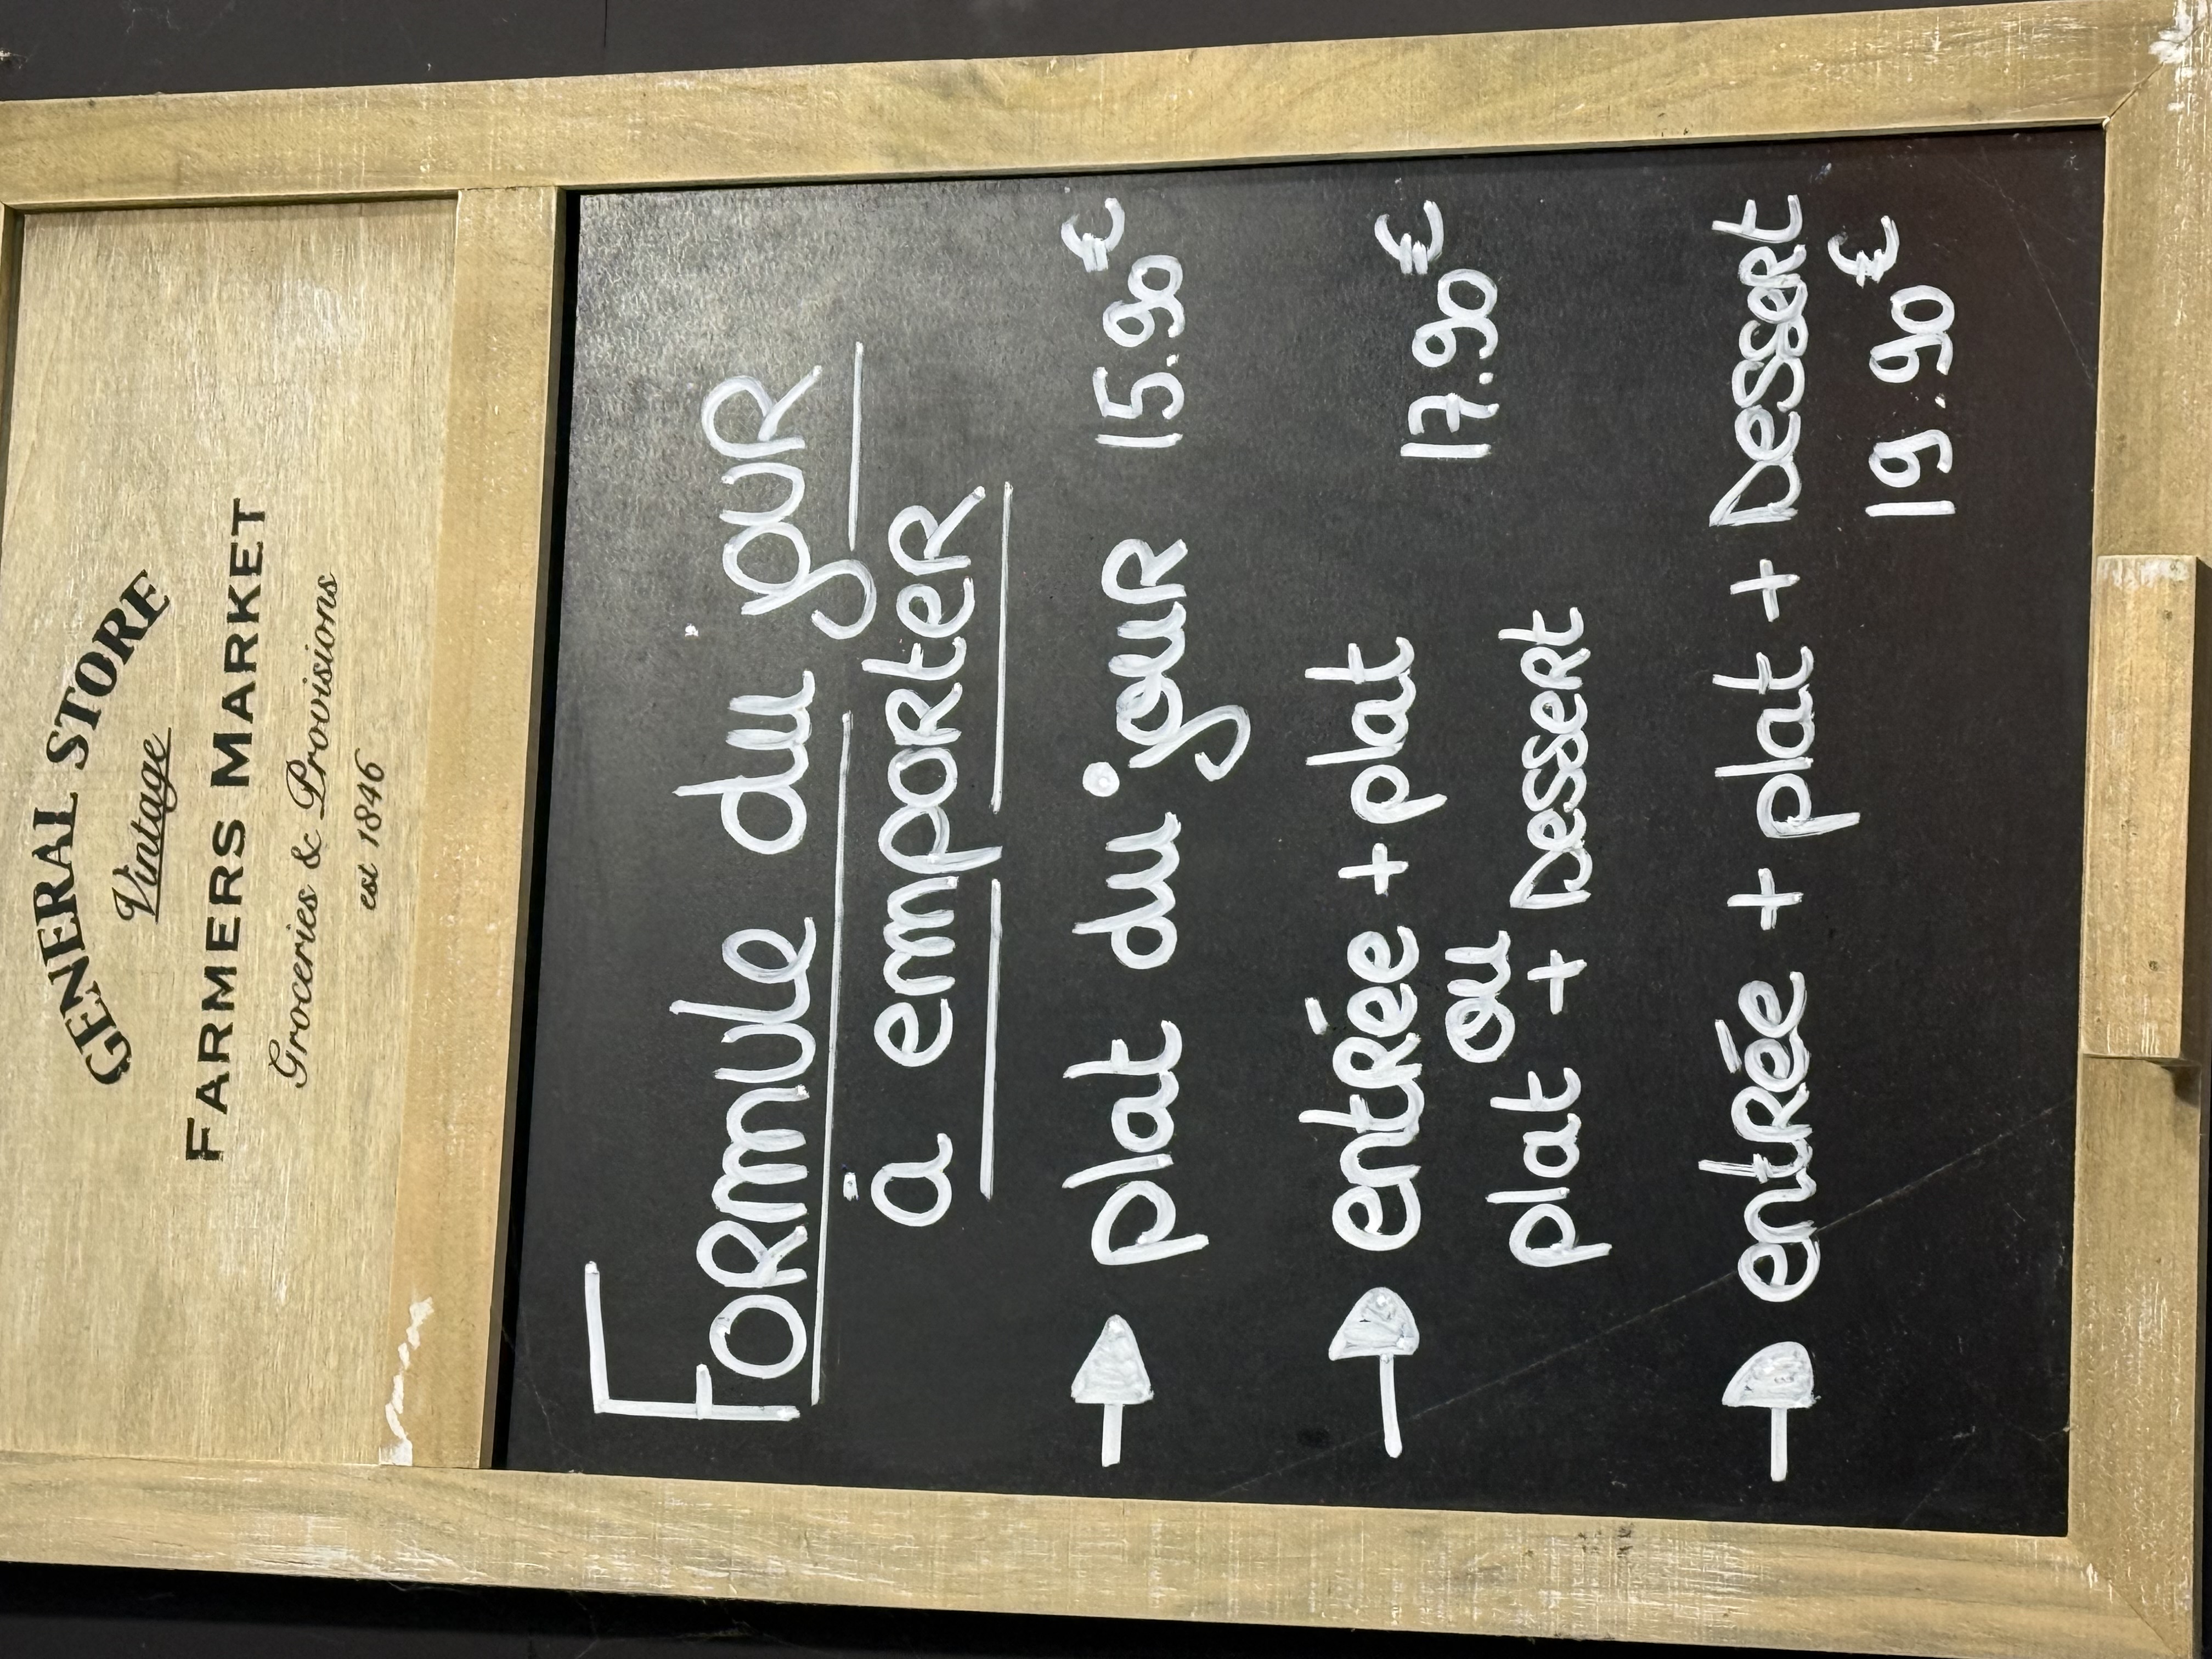 GENERAL STORE
Vintage
FARMERS MARKET
Groceries & Provisions
est 1846
Formule du jour
à emporter
plat du jour 15.90€
entrée + plat
ou 17.90€
plat + Dessert
entrée + plat + Dessert
19.90€